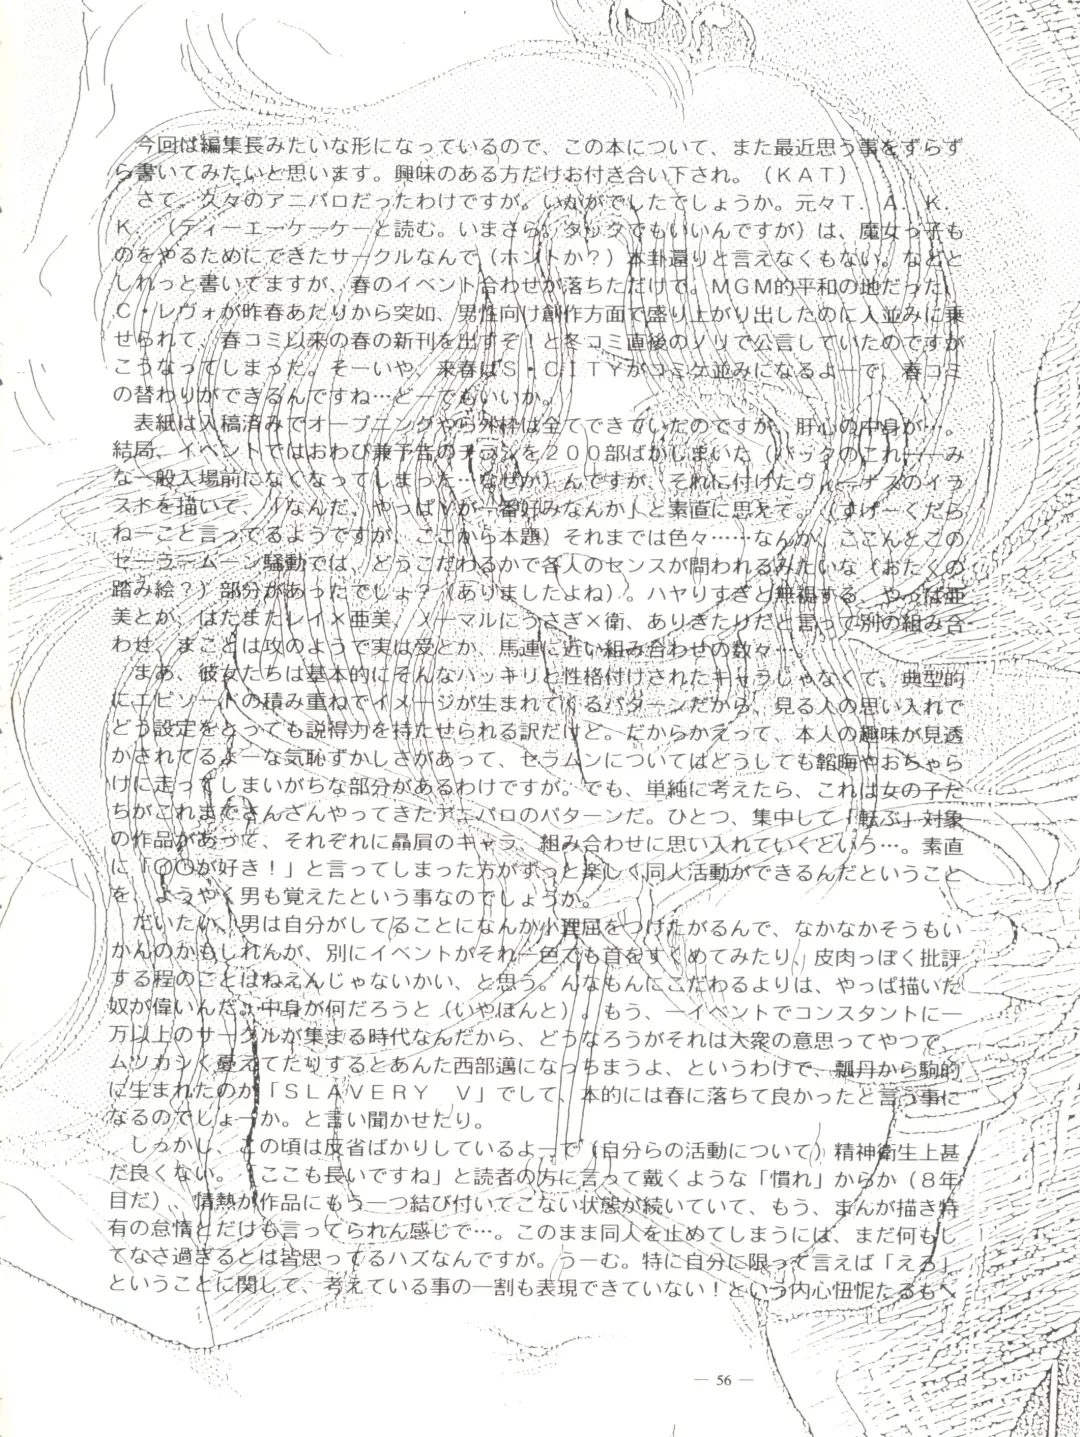 今回は編集長みたいな形になっているので、この本について、また最近思う事をずらず
ら書いてみたいと思います。興味のある方だけお付き合い下され。（ＫＡＴ）
さて、久々のアニパロだったわけですが。いかがでしたでしょうか。元々Ｔ．Ａ．Ｋ．
Ｋ．（ティーエーケーケーと読む。いまさら。タックでもいいんですが）は、魔女っ子も
のをやるためにできたサークルなんで（ホントか？）本卦還りと言えなくもない。などと
しれっと書いてますが、春のイベント合わせが落ちただけで。ＭＧＭ的平和の地だった
Ｃ・レヴォが昨春あたりから突如、男性向け創作方面で盛り上がり出したのに人並みに乗
せられて、春コミ以来の春の新刊を出すぞ！と冬コミ直後のノリで公言していたのですが
こうなってしまった。そーいや、来春はＳ・ＣＩＴＹがコミケ並みになるよーで、春コミ
の替わりができるんですね…どーでもいいか。
表紙は入稿済みでオープニングやら外枠は全てできていたのですが、肝心の中身が…。
結局、イベントではおわび兼予告のチラシを２００部ばかしまいた（バックのこれ――み
な一般入場前になくなってしまった…なぜか）んですが、それに付けたヴィーナスのイラ
ストを描いて、「なんだ、やっぱＶが一番好みなんか」と素直に思えて。（すげーくだら
ねーこと言ってるようですが、ここから本題）それまでは色々……なんか、ここんとこの
セーラームーン騒動では、どうこだわるかで各人のセンスが問われるみたいな（おたくの
踏み絵？）部分があったでしょ？（ありましたよね）。ハヤりすぎと無視する、やっぱ亜
美とか、はたまたレイ×亜美、ノーマルにうさぎ×衛、ありきたりだと言って別の組み合
わせ、まことは攻のようで実は受とか、馬連に近い組み合わせの数々…。
まあ、彼女たちは基本的にそんなハッキリと性格付けされたキャラじゃなくて、典型的
にエピソードの積み重ねでイメージが生まれてくるパターンだから、見る人の思い入れで
どう設定をとっても説得力を持たせられる訳だけど。だからかえって、本人の趣味が見透
かされてるよーな気恥ずかしさがあって、セラムンについてはどうしても韜晦やおちゃら
けに走ってしまいがちな部分があるわけですが。でも、単純に考えたら、これは女の子た
ちがこれまでさんざんやってきたアニパロのパターンだ。ひとつ、集中して「転ぶ」対象
の作品があって、それぞれに贔屓のキャラ、組み合わせに思い入れていくという…。素直
に「○○が好き！」と言ってしまった方がずっと楽しく同人活動ができるんだということ
を、ようやく男も覚えたという事なのでしょうか。
だいたい、男は自分がしてることになんか小理屈をつけたがるんで、なかなかそうもい
かんのかもしれんが、別にイベントがそれ一色でも首をすくめてみたり、皮肉っぽく批評
する程のことはねえんじゃないかい、と思う。んなもんにこだわるよりは、やっぱ描いた
奴が偉いんだ。中身が何だろうと（いやほんと）。もう、一イベントでコンスタントに一
万以上のサークルが集まる時代なんだから、どうなろうがそれは大衆の意思ってやつで、
ムツカシく憂えてたりするとあんた西部邁になっちまうよ、というわけで、瓢丹から駒的
に生まれたのが「ＳＬＡＶＥＲＹ　Ｖ」でして、本的には春に落ちて良かったと言う事に
なるのでしょーか。と言い聞かせたり。
しっかし、この頃は反省ばかりしているよーで（自分らの活動について）精神衛生上甚
だ良くない。「ここも長いですね」と読者の方に言って戴くような「慣れ」からか（８年
目だ）、情熱が作品にもう一つ結び付いてこない状態が続いていて、もう、まんが描き特
有の怠惰とだけも言ってられん感じで…。このまま同人を止めてしまうには、まだ何もし
てなさ過ぎるとは皆思ってるハズなんですが。うーむ。特に自分に限って言えば「えろ」
ということに関して、考えている事の一割も表現できていない！という内心忸怩たるもへ
— 56 —